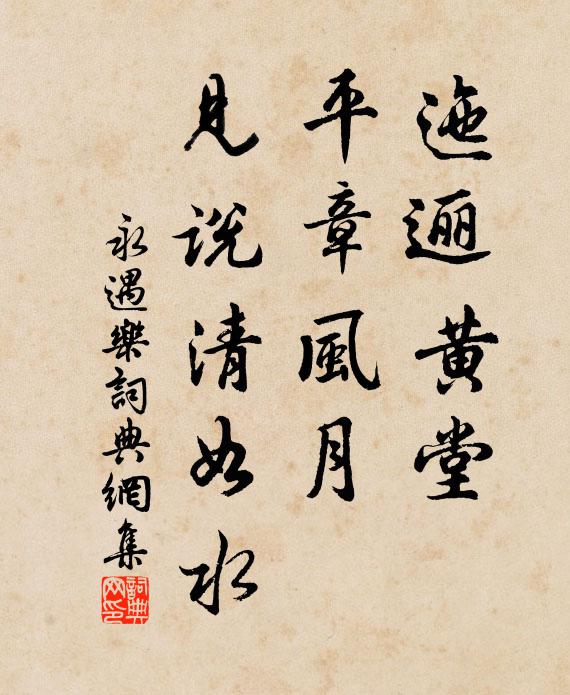 迤逦黄堂
平章風月
見説清如水
永遇樂詞典網集
詞典网印